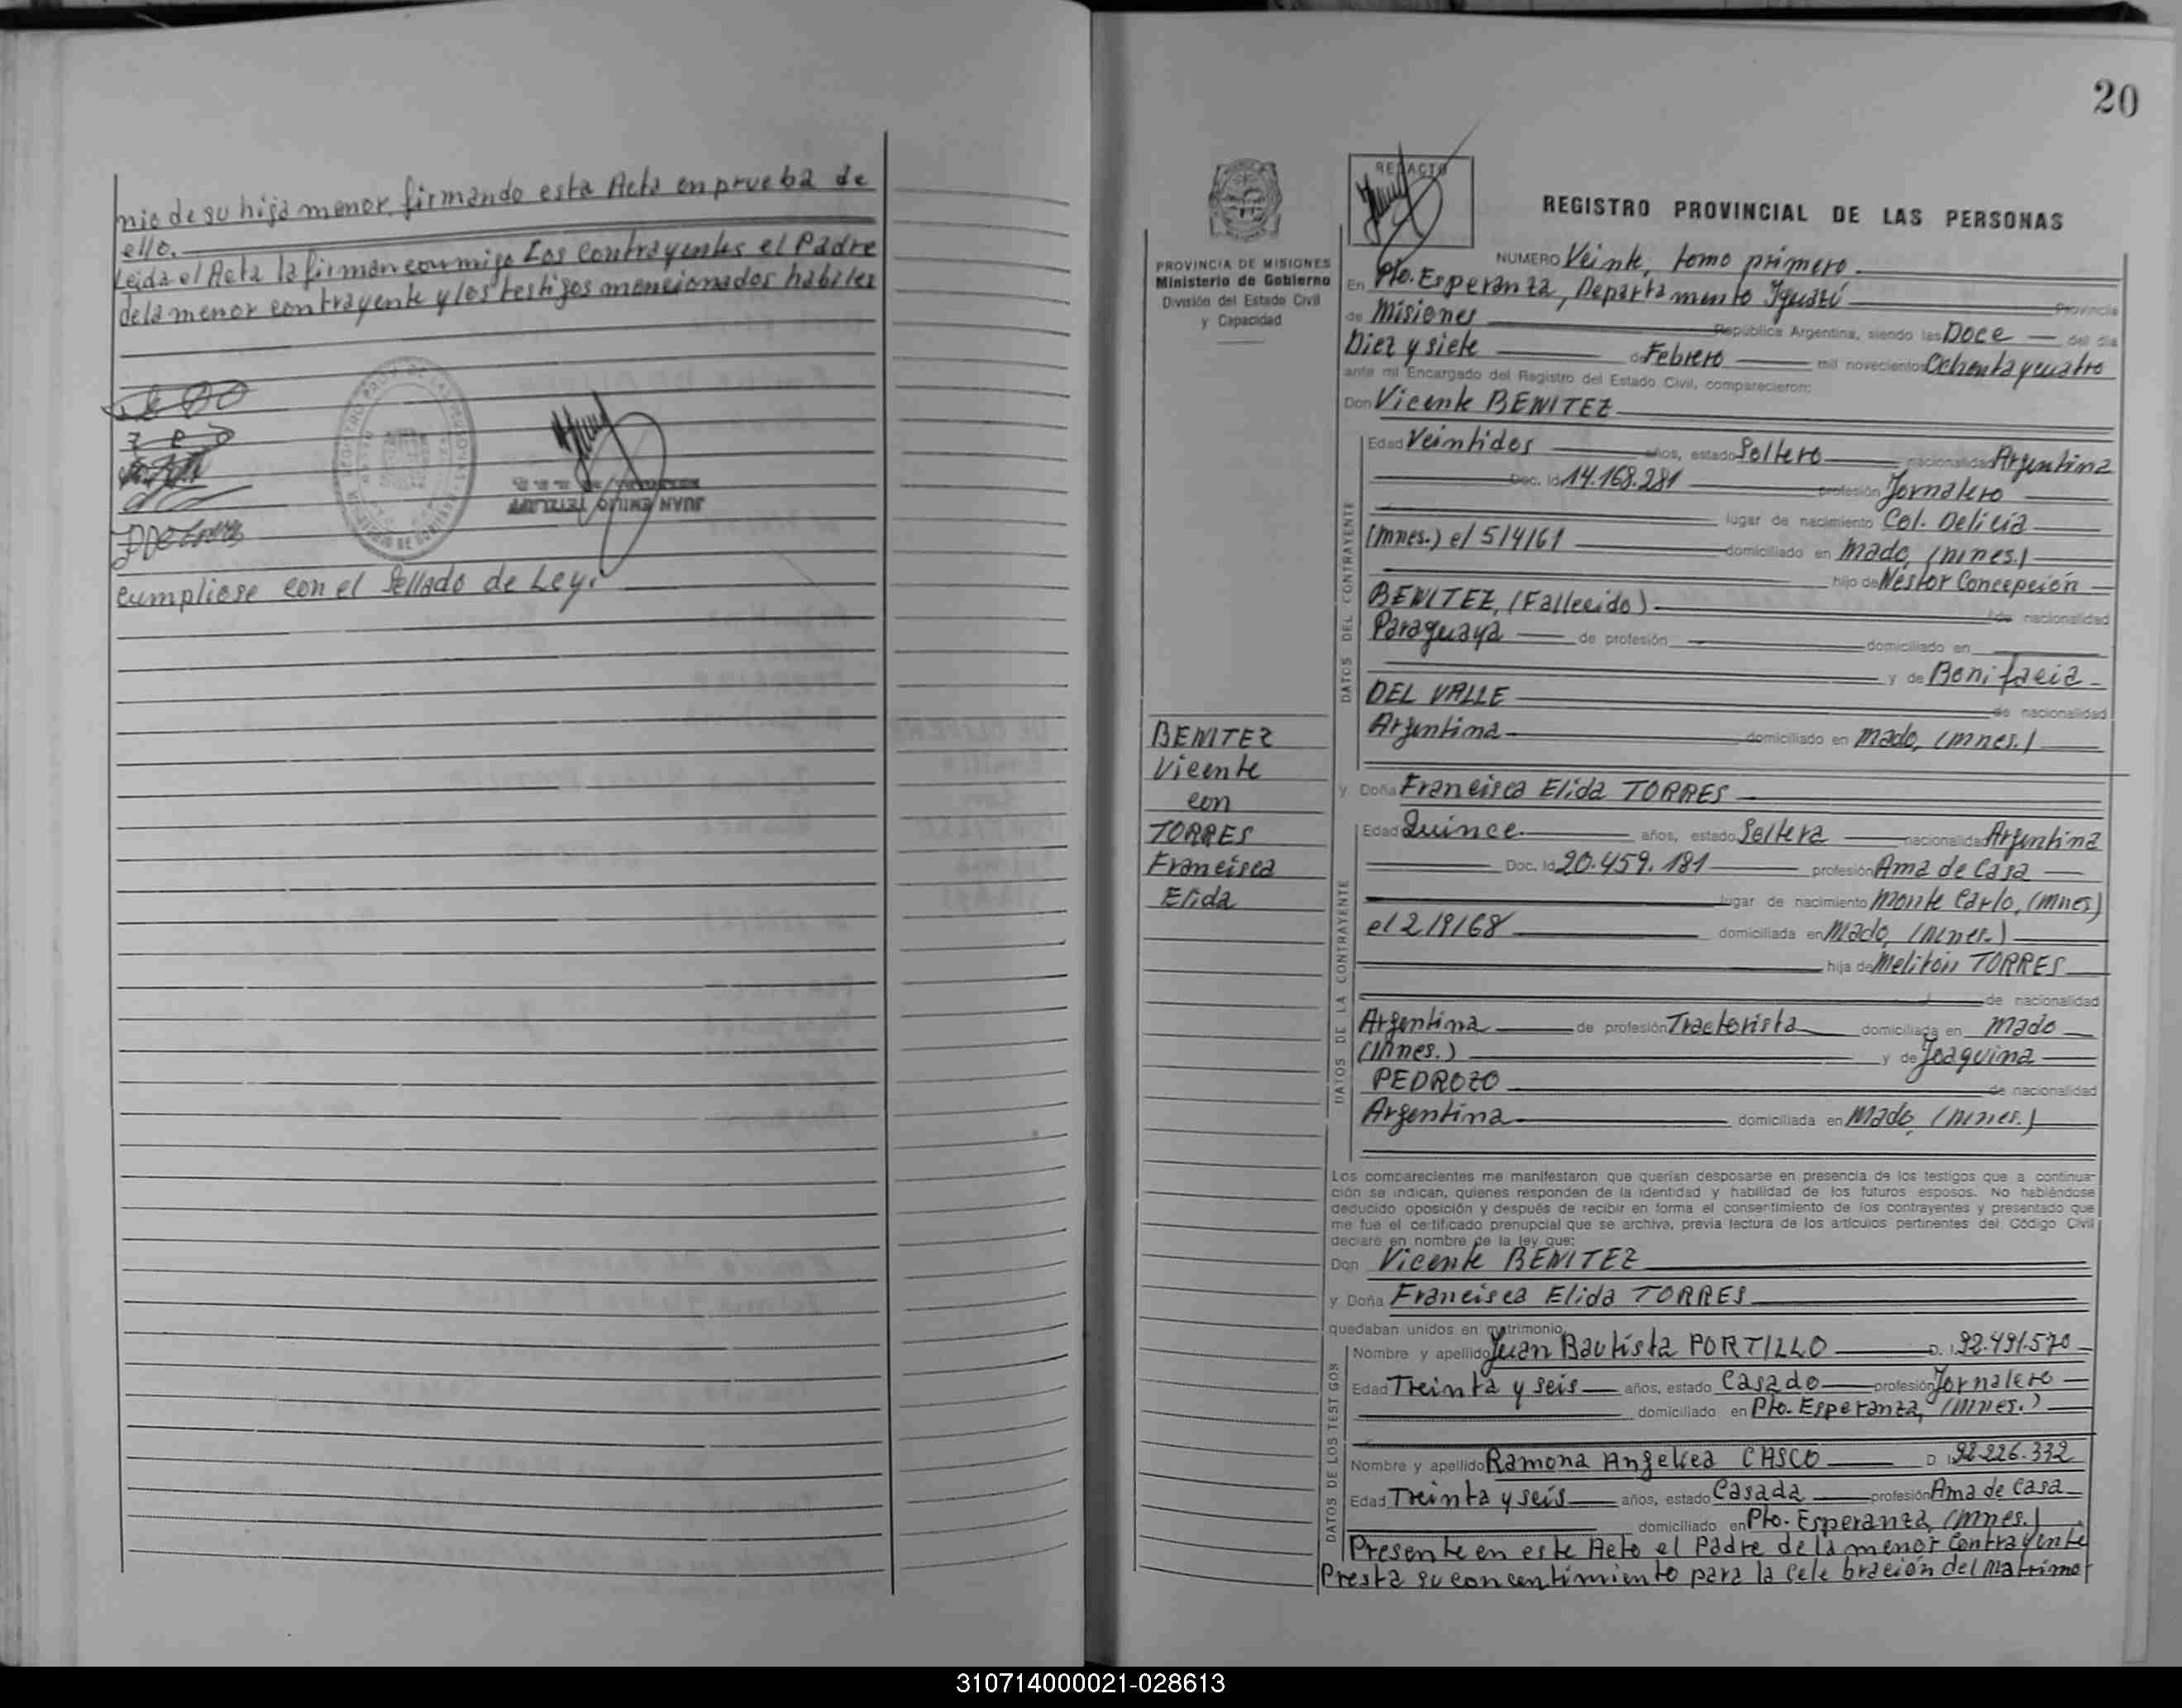 nio de su hija menor firmando esta Acta en prueba de
ello.
Leida el Acta la firman conmigo Los Contrayentes el Padre
de la menor contrayente y los testigos mencionados habiles
JUAN EMILIO TETZLAFF
cumpliose con el Sellado de Ley.
20
REDACTO
REGISTRO PROVINCIAL DE LAS PERSONAS
PROVINCIA DE MISIONES
Ministerio de Gobierno
División del Estado Civil
y Capacidad
NUMERO Veinte, tomo primero
En Pto. Esperanza, Departamento Iguazú Provincia
de Misiones República Argentina, siendo las Doce del día
Diez y siete de Febrero mil novecientos Ochenta y cuatro
ante mí Encargado del Registro del Estado Civil, comparecieron:
Don Vicente BENITEZ
DATOS DEL CONTRAYENTE
Edad Veintidos años, estado Soltero nacionalidad Argentina
Doc. Id 14.168.281 profesión Jornalero
lugar de nacimiento Col. Delicia
(Mnes.) el 5/4/61 domiciliado en Mado, (Mnes.)
hijo de Néstor Concepción
BENITEZ, (Fallecido) de nacionalidad
Paraguaya de profesión domiciliado en
y de Bonifacia
DEL VALLE de nacionalidad
Argentina domiciliado en Mado, (Mnes.)
BENITEZ
Vicente
con
TORRES
Francisca
Elida
y Doña Francisca Elida TORRES
DATOS DE LA CONTRAYENTE
Edad Quince años, estado Soltera nacionalidad Argentina
Doc. Id 20.459.181 profesión Ama de Casa
lugar de nacimiento Monte Carlo, (Mnes)
el 2/9/68 domiciliada en Mado, (Mnes.)
hija de Melitón TORRES
de nacionalidad
Argentina de profesión Tractorista domiciliada en Mado
(Mnes.) y de Joaquina
PEDROZO de nacionalidad
Argentina domiciliada en Mado, (Mnes.)
Los comparecientes me manifestaron que querían desposarse en presencia de los testigos que a continua-
ción se indican, quienes responden de la identidad y habilidad de los futuros esposos. No habiéndose
deducido oposición y después de recibir en forma el consentimiento de los contrayentes y presentado que
me fue el certificado prenupcial que se archiva, previa lectura de los artículos pertinentes del Código Civil
declaré en nombre de la ley que:
Don Vicente BENITEZ
y Doña Francisca Elida TORRES
quedaban unidos en matrimonio
DATOS DE LOS TESTIGOS
Nombre y apellido Juan Bautista PORTILLO D. I 92.491.570
Edad Treinta y seis años, estado Casado profesión Jornalero
domiciliado en Pto. Esperanza, (Mnes.)
Nombre y apellido Ramona Angelica CASCO D I 92.226.332
Edad Treinta y seis años, estado Casada profesión Ama de Casa
domiciliado en Pto. Esperanza, (Mnes.)
Presente en este Acto el Padre de la menor Contrayente
Presta su concentimiento para la Celebración del Matrimo
310714000021-028613